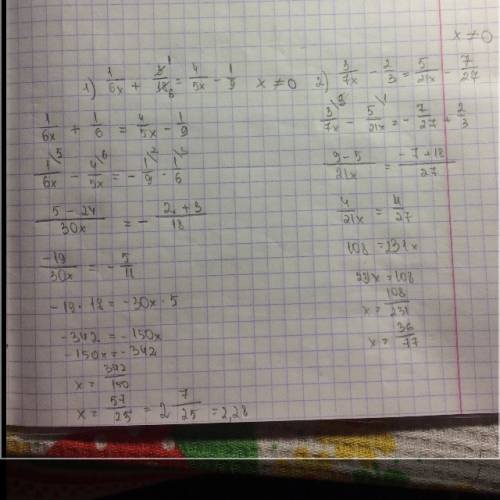 x ≠ 0
1) 1/6x + 3/18 = 4/5x - 1/9 x ≠ 0
1/6x + 1/6 = 4/5x - 1/9
1/6x - 4/5x = - 1/9 - 1/6
5 - 24/30x = - 2 + 3/18
-19/30x = - 5/18
-19 · 18 = -30x · 5
-342 = -150x
-150x = -342
x = 342/150
x = 57/25 = 2 7/25 = 2,28
2) 3/7x - 2/3 = 5/21x - 7/27
3/7x - 5/21x = - 7/27 + 2/3
9 - 5/21x = -7 + 18/27
4/21x = 11/27
108 = 231x
231x = 108
x = 108/231
x = 36/77